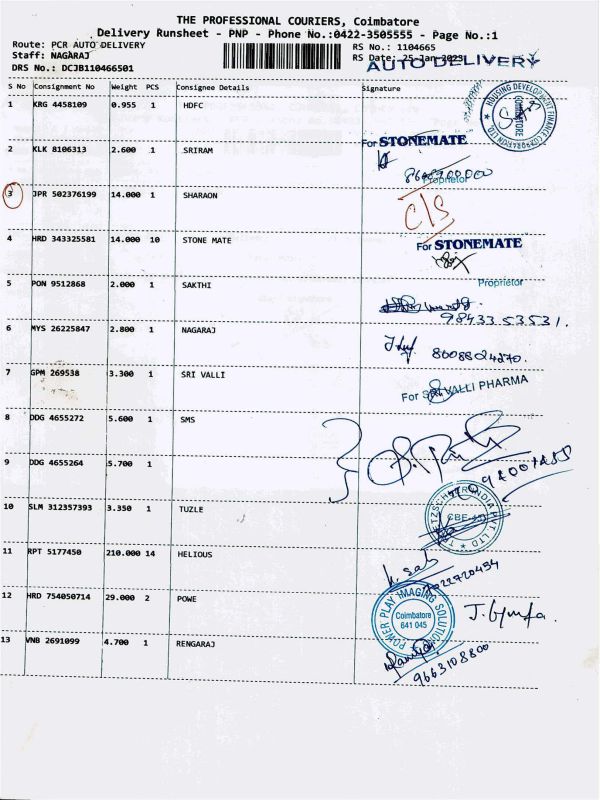 THE PROFESSIONAL COURIERS, Coimbatore
Delivery Runsheet - PNP - Phone No.:0422-3505555 - Page No.:1
Route: PCR AUTO DELIVERY
RS No.: 1104665
Staff: NAGARAJ
RS Date: 25-Jan-2023
AUTO DELIVERY
DRS No.: DCJB110466501
S No Consignment No Weight PCS Consignee Details Signature
1 KRG 4458109 0.955 1 HDFC
HOUSING DEVELOPMENT FINANCE CORPORATION LTD COIMBATORE
2 KLK 8106313 2.600 1 SRIRAM
For STONEMATE
Proprietor
3 JPR 502376199 14.000 1 SHARAON
C/S
4 HRD 343325581 14.000 10 STONE MATE
For STONEMATE
Proprietor
5 PON 9512868 2.000 1 SAKTHI
98433 53531.
6 MYS 26225847 2.800 1 NAGARAJ
8608824270.
7 GPM 269538 3.300 1 SRI VALLI
For SRI VALLI PHARMA
8 DDG 4655272 5.600 1 SMS
9 DDG 4655264 5.700 1
10 SLM 312357393 3.350 1 TUZLE
CBE
11 RPT 5177450 210.000 14 HELIOUS
7022720434
12 HRD 754050714 29.000 2 POWE
POWER PLAY IMAGING SOLUTIONS
Coimbatore
641 045
13 VNB 2691099 4.700 1 RENGARAJ
9663108800